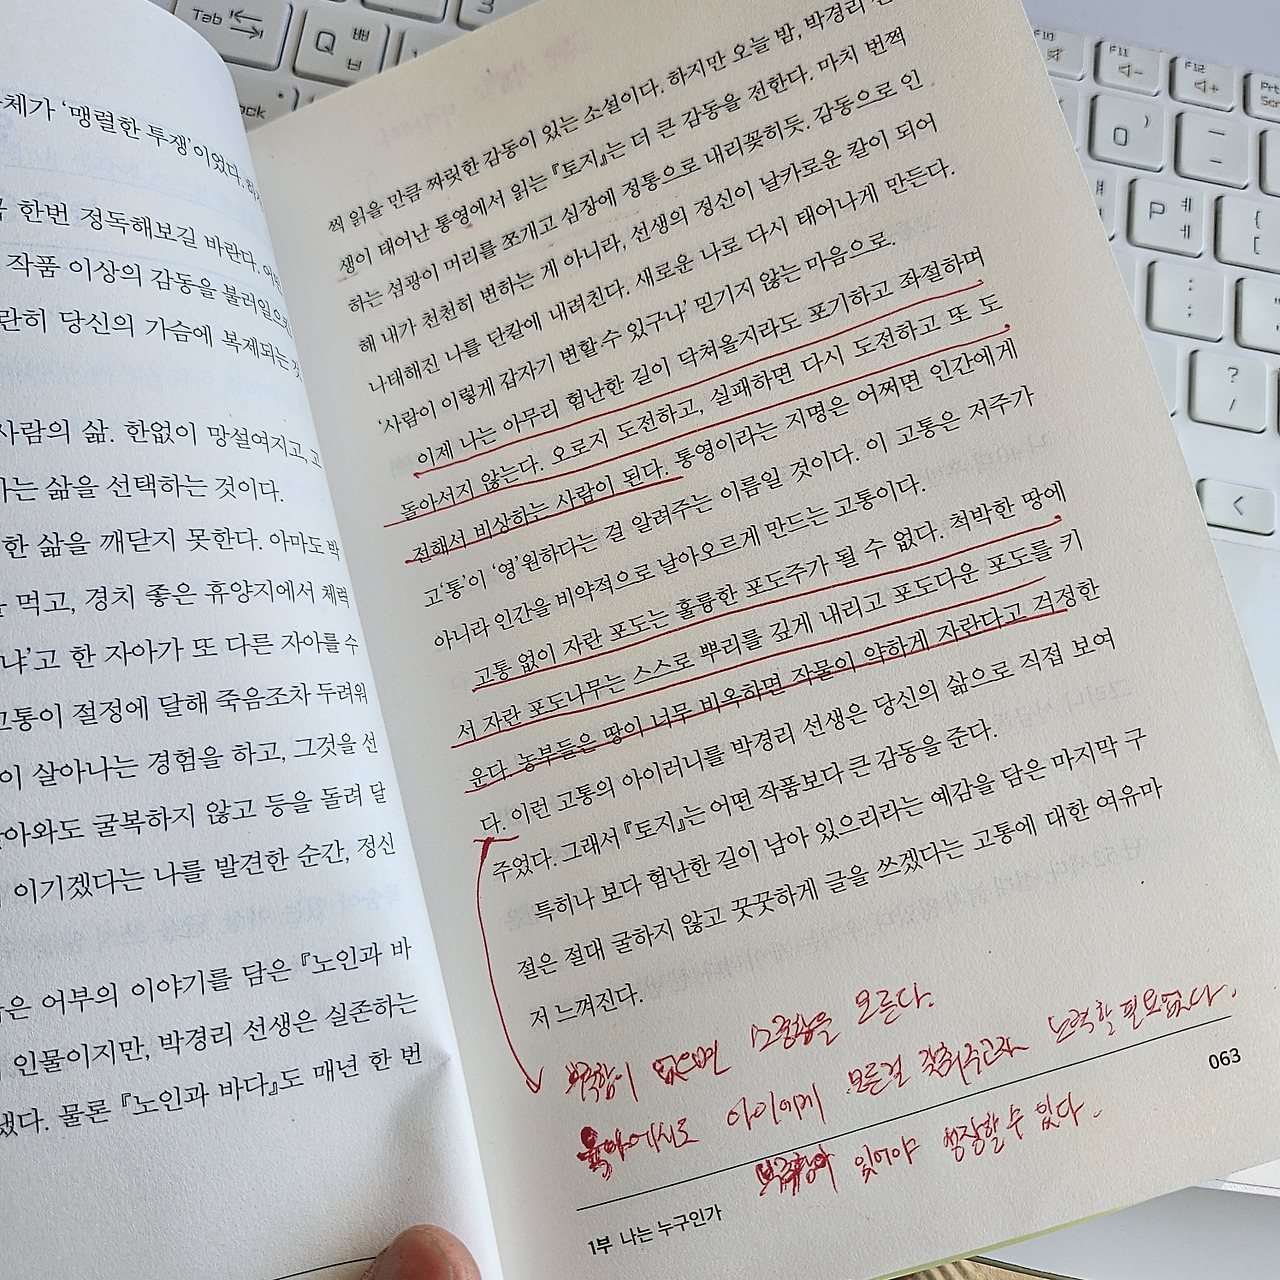 Tab
Q ㅃ
ㅂ
3
ock
F10
F11
F12
Prt
Scr
P ㅖ
ㅔ
체가 '맹렬한 투쟁'이었다.
한번 정독해보길 바란다.
작품 이상의 감동을 불러일으
란히 당신의 가슴에 복제되는
사람의 삶. 한없이 망설여지고, 고
는 삶을 선택하는 것이다.
한 삶을 깨닫지 못한다. 아마도 박
먹고, 경치 좋은 휴양지에서 체력
냐'고 한 자아가 또 다른 자아를 수
고통이 절정에 달해 죽음조차 두려워
이 살아나는 경험을 하고, 그것을 선
아와도 굴복하지 않고 등을 돌려 달
이기겠다는 나를 발견한 순간, 정신
은 어부의 이야기를 담은 『노인과 바
인물이지만, 박경리 선생은 실존하는
냈다. 물론 『노인과 바다』도 매년 한 번
씩 읽을 만큼 짜릿한 감동이 있는 소설이다. 하지만 오늘 밤, 박경리 선
생이 태어난 통영에서 읽는 『토지』는 더 큰 감동을 전한다. 마치 번쩍
하는 섬광이 머리를 쪼개고 심장에 정통으로 내리꽂히듯. 감동으로 인
해 내가 천천히 변하는 게 아니라, 선생의 정신이 날카로운 칼이 되어
나태해진 나를 단칼에 내려친다. 새로운 나로 다시 태어나게 만든다.
'사람이 이렇게 갑자기 변할 수 있구나' 믿기지 않는 마음으로.
이제 나는 아무리 험난한 길이 닥쳐올지라도 포기하고 좌절하며
돌아서지 않는다. 오로지 도전하고, 실패하면 다시 도전하고 또 도
전해서 비상하는 사람이 된다. 통영이라는 지명은 어쩌면 인간에게
고'통'이 '영'원하다는 걸 알려주는 이름일 것이다. 이 고통은 저주가
아니라 인간을 비약적으로 날아오르게 만드는 고통이다.
고통 없이 자란 포도는 훌륭한 포도주가 될 수 없다. 척박한 땅에
서 자란 포도나무는 스스로 뿌리를 깊게 내리고 포도다운 포도를 키
운다. 농부들은 땅이 너무 비옥하면 작물이 약하게 자란다고 걱정한
다. 이런 고통의 아이러니를 박경리 선생은 당신의 삶으로 직접 보여
주었다. 그래서 『토지』는 어떤 작품보다 큰 감동을 준다.
특히나 보다 험난한 길이 남아 있으리라는 예감을 담은 마지막 구
절은 절대 굴하지 않고 꿋꿋하게 글을 쓰겠다는 고통에 대한 여유마
저 느껴진다.
부족함이 없으면 소중함을 모른다.
육아에서도 아이에게 모든걸 다 노력할 필요없다.
부족함이 있어야 성장할 수 있다.
063
1부 나는 누구인가